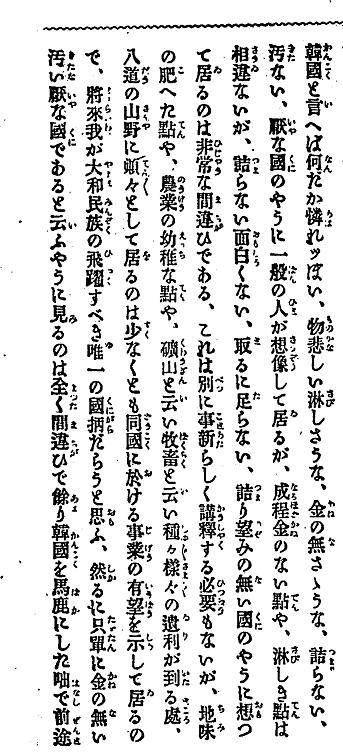 韓國と言へば何だか憐れッぽい、物悲しい淋しさうな、金の無さゝうな、詰らない、
汚ない、厭な國のやうに一般の人が想像して居るが、成程金のない點や、淋しき點は
相違ないが、詰らない面白くない、取るに足らない、詰り望みの無い國のやうに想つ
て居るのは非常な間違ひである、これは別に事新らしく講釋する必要もないが、地味
の肥へた點や、農業の幼稚な點や、礦山と云い牧畜と云い種々樣々の遺利が到る處、
八道の山野に頻々として居るのは少なくとも同國に於ける事業の有望を示して居るの
で、將來我が大和民族の飛躍すべき唯一の國柄だらうと思ふ、然るに只單に金の無い
汚い厭な國であると云ふやうに見るのは全く間違ひで餘り韓國を馬鹿にした咄で前途